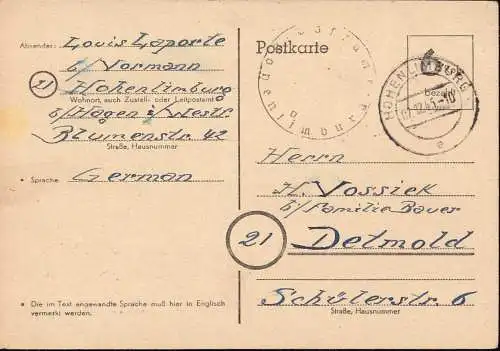 Absender: Louis Laporte
b/ Vormann
21 Hohenlimburg
Wohnort, auch Zustell- oder Leitpostamt
b/ Hagen i/Westf.
Blumenstr. 42
Straße, Hausnummer
• Sprache: German
• Die im Text angewandte Sprache muß hier in Englisch
vermerkt werden.
Postkarte
6
bezahlt
HOHENLIMBURG
e
Herrn
H. Vossiek
b/ Familie Bauer
21 Detmold
Schülerstr. 6
Straße, Hausnummer